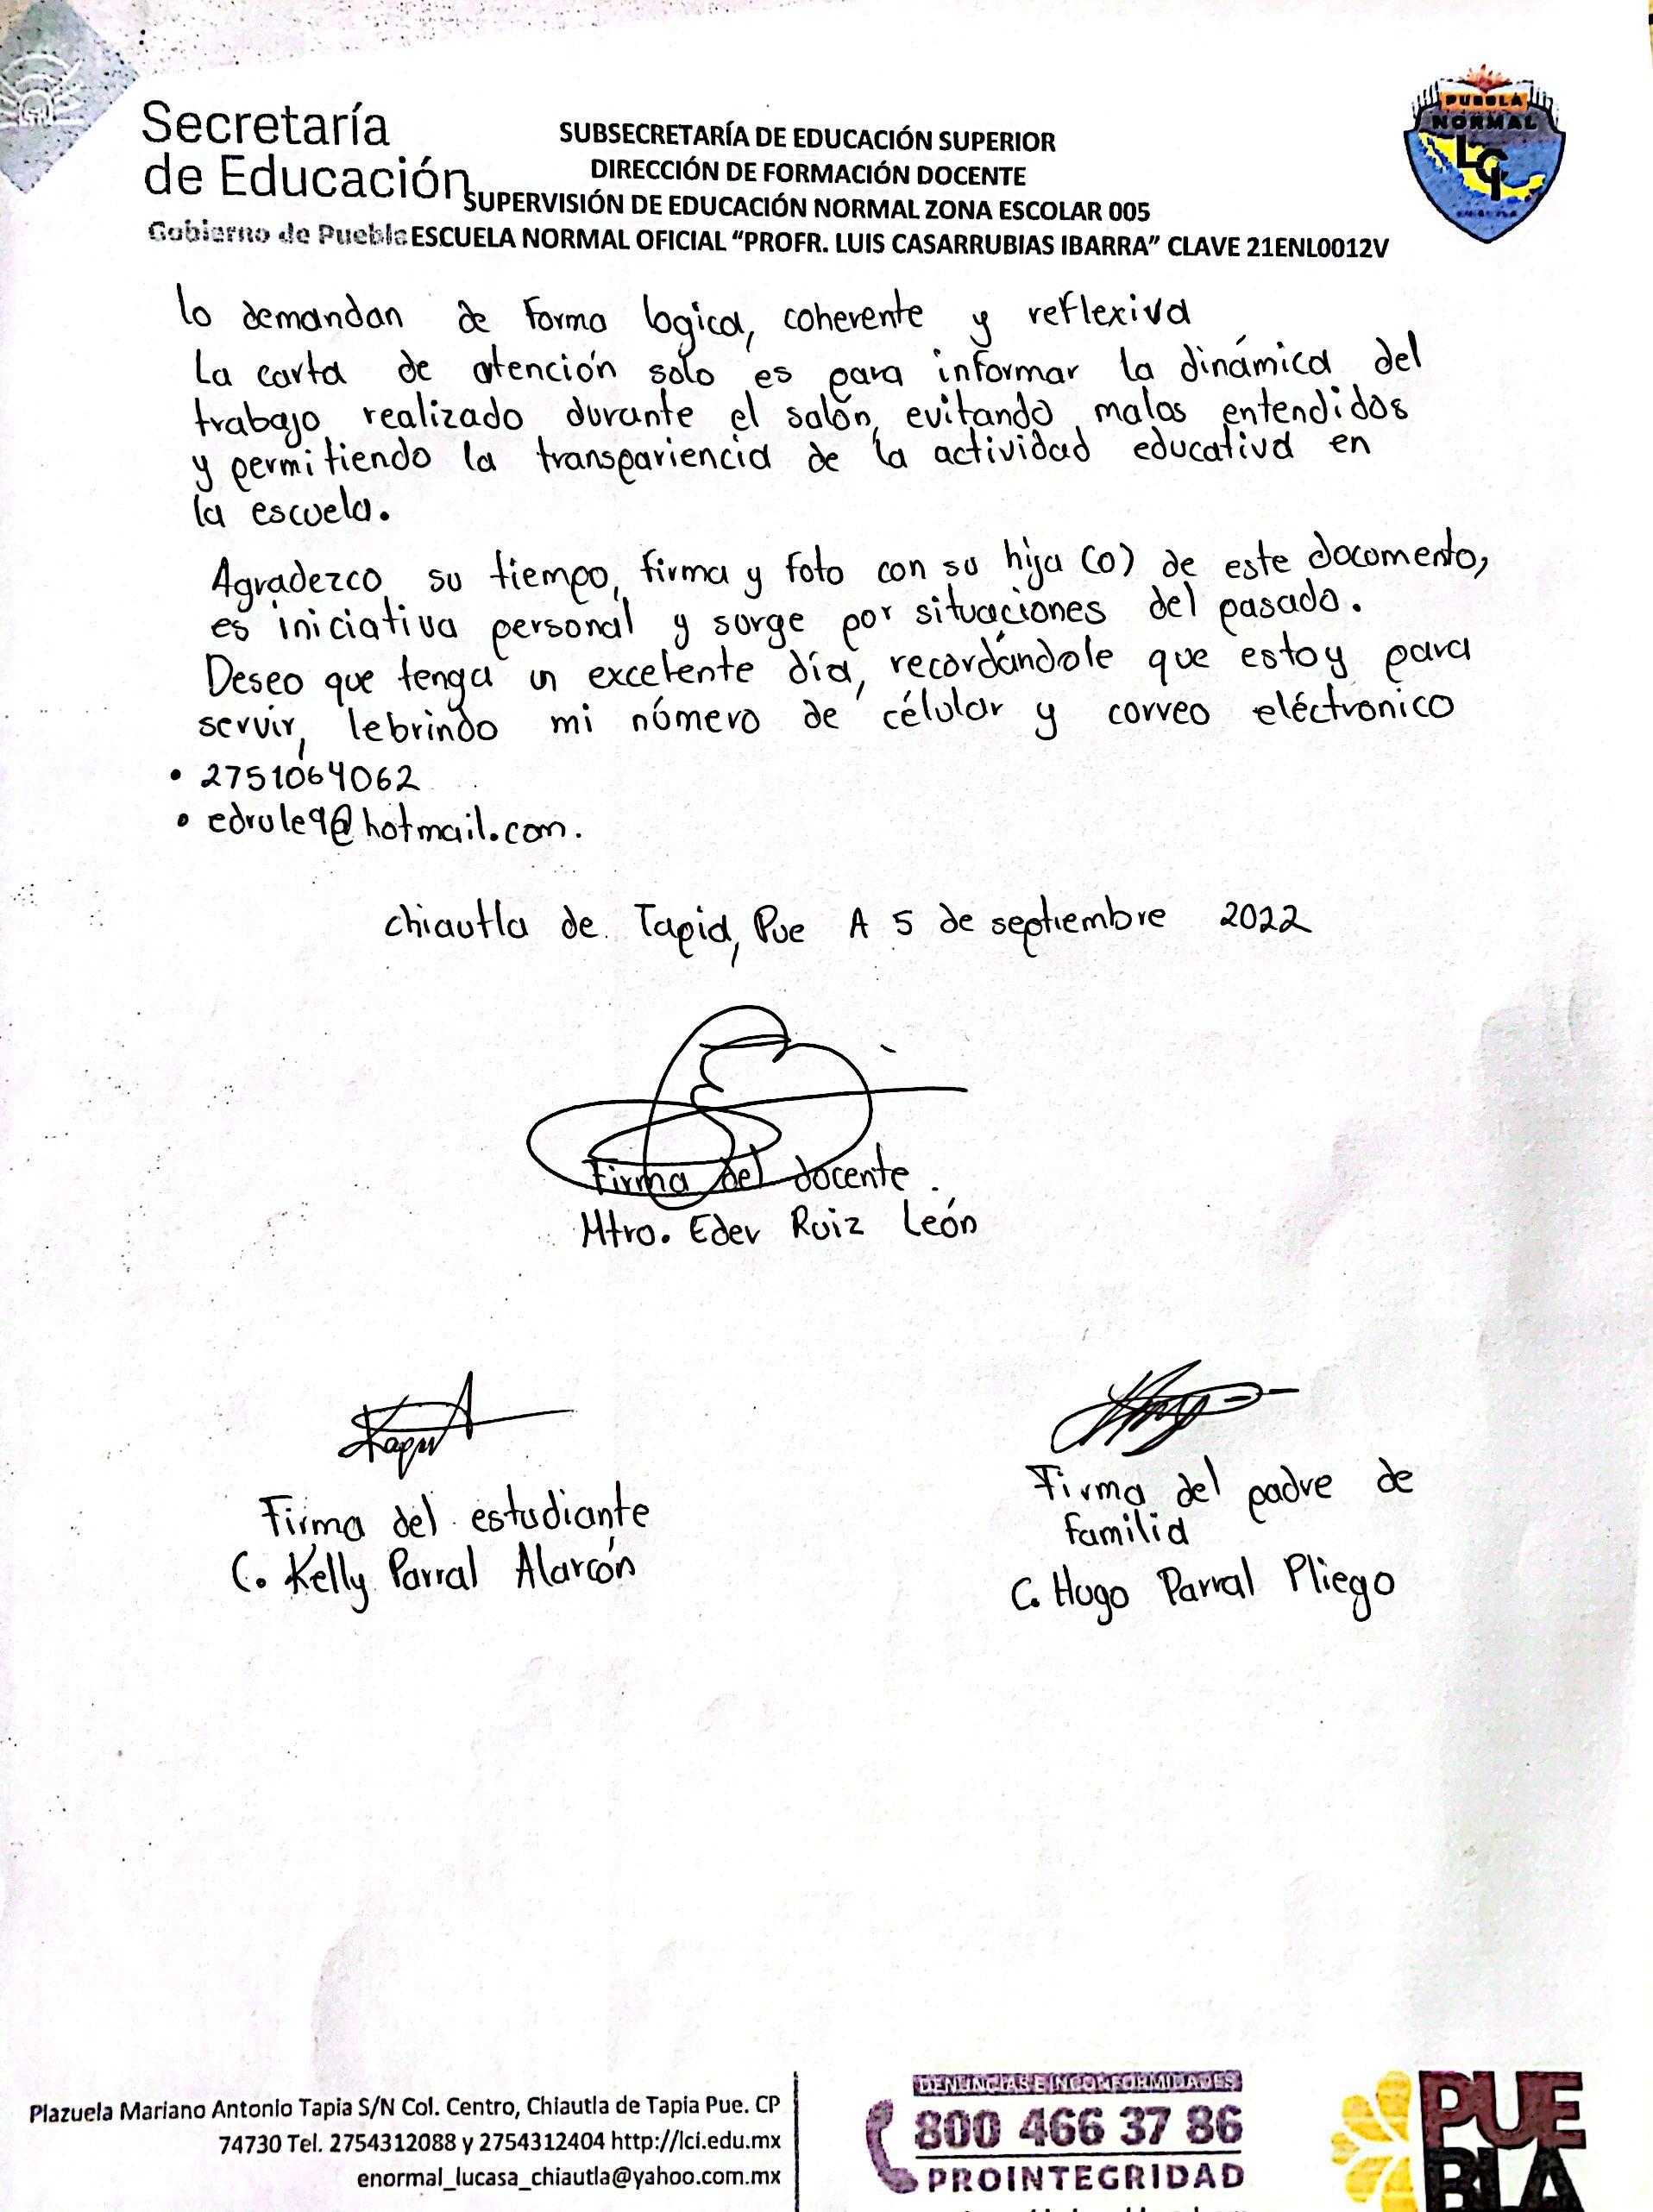 Secretaría
de Educación
Gobierno de Puebla
SUBSECRETARÍA DE EDUCACIÓN SUPERIOR
DIRECCIÓN DE FORMACIÓN DOCENTE
SUPERVISIÓN DE EDUCACIÓN NORMAL ZONA ESCOLAR 005
ESCUELA NORMAL OFICIAL “PROFR. LUIS CASARRUBIAS IBARRA” CLAVE 21ENL0012V
PUEBLA
NORMAL
LCI
lo demandan de forma logica, coherente y reflexiva
La carta de atención solo es para informar la dinámica del
trabajo realizado durante el salón, evitando malos entendidos
y permitiendo la transpariencia de la actividad educativa en
la escuela.
Agradezco su tiempo, firma y foto con su hija (o) de este documento,
es iniciativa personal y surge por situaciones del pasado.
Deseo que tenga un excelente día, recordándole que estoy para
servir, lebrindo mi número de célular y correo eléctronico
• 2751064062
• edrule9@hotmail.com.
Chiautla de Tapia, Pue A 5 de septiembre 2022
Firma del docente.
Mtro. Eder Ruiz León
Firma del estudiante
C. Kelly Parral Alarcón
Firma del padre de
familia
C. Hugo Parral Pliego
Plazuela Mariano Antonio Tapia S/N Col. Centro, Chiautla de Tapia Pue. CP
74730 Tel. 2754312088 y 2754312404 http://lci.edu.mx
enormal_lucasa_chiautla@yahoo.com.mx
DENUNCIAS E INCONFORMIDADES
800 466 37 86
PROINTEGRIDAD
PUE
BLA